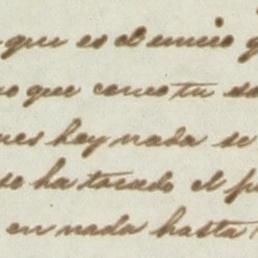 que es el unico
que como tu
hay nada se
se ha tocado el
en nada hasta